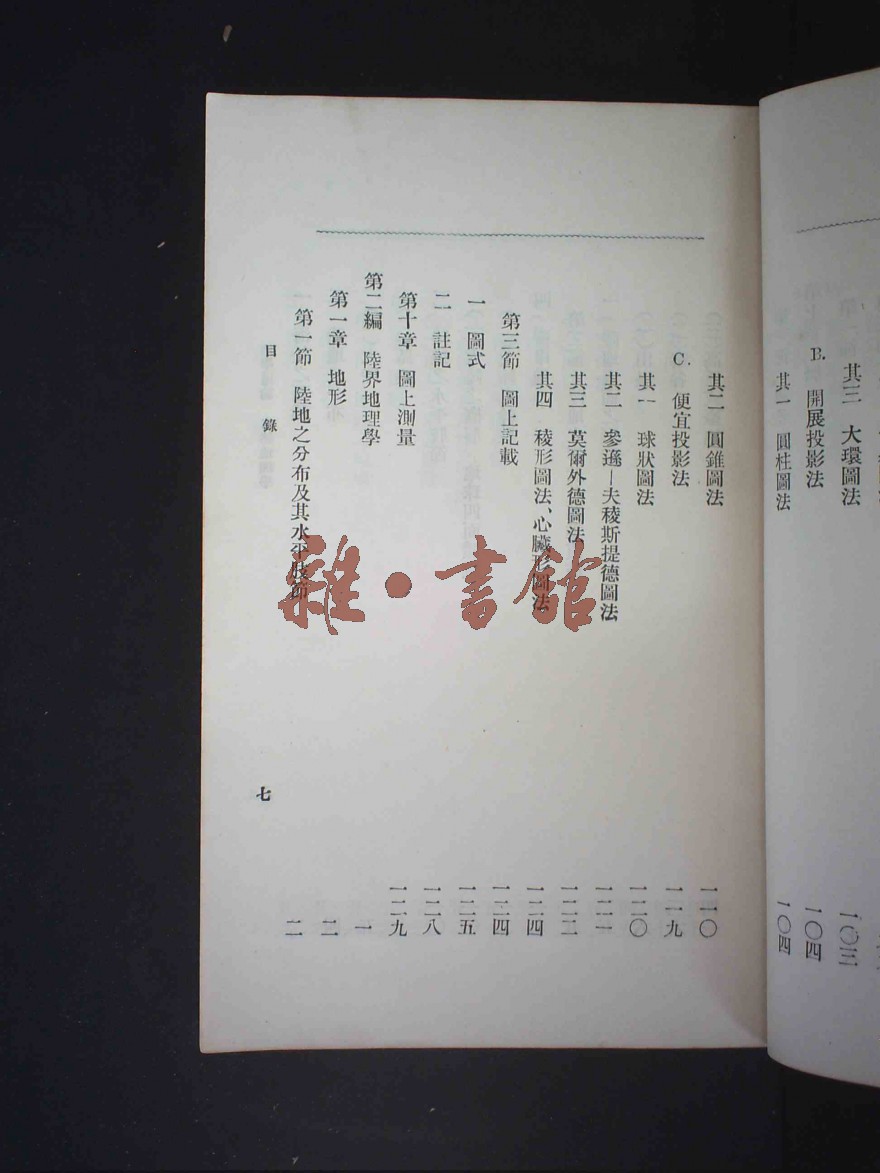 其三 大環圖法 一〇三
B. 開展投影法 一〇四
其一 圓柱圖法 一〇四
其二 圓錐圖法 一一〇
C. 便宜投影法 一一九
其一 球狀圖法 一二〇
其二 參遜—夫稜斯提德圖法 一二一
其三 莫爾外德圖法 一二二
其四 稜形圖法、心臟形圖法 一二四
第三節 圖上記載 一二四
一 圖式 一二五
二 註記 一二八
第十章 圖上測量 一二九
第二編 陸界地理學 一
第一章 地形 二
第一節 陸地之分布及其水平肢節 二
目錄
七
雜·書館